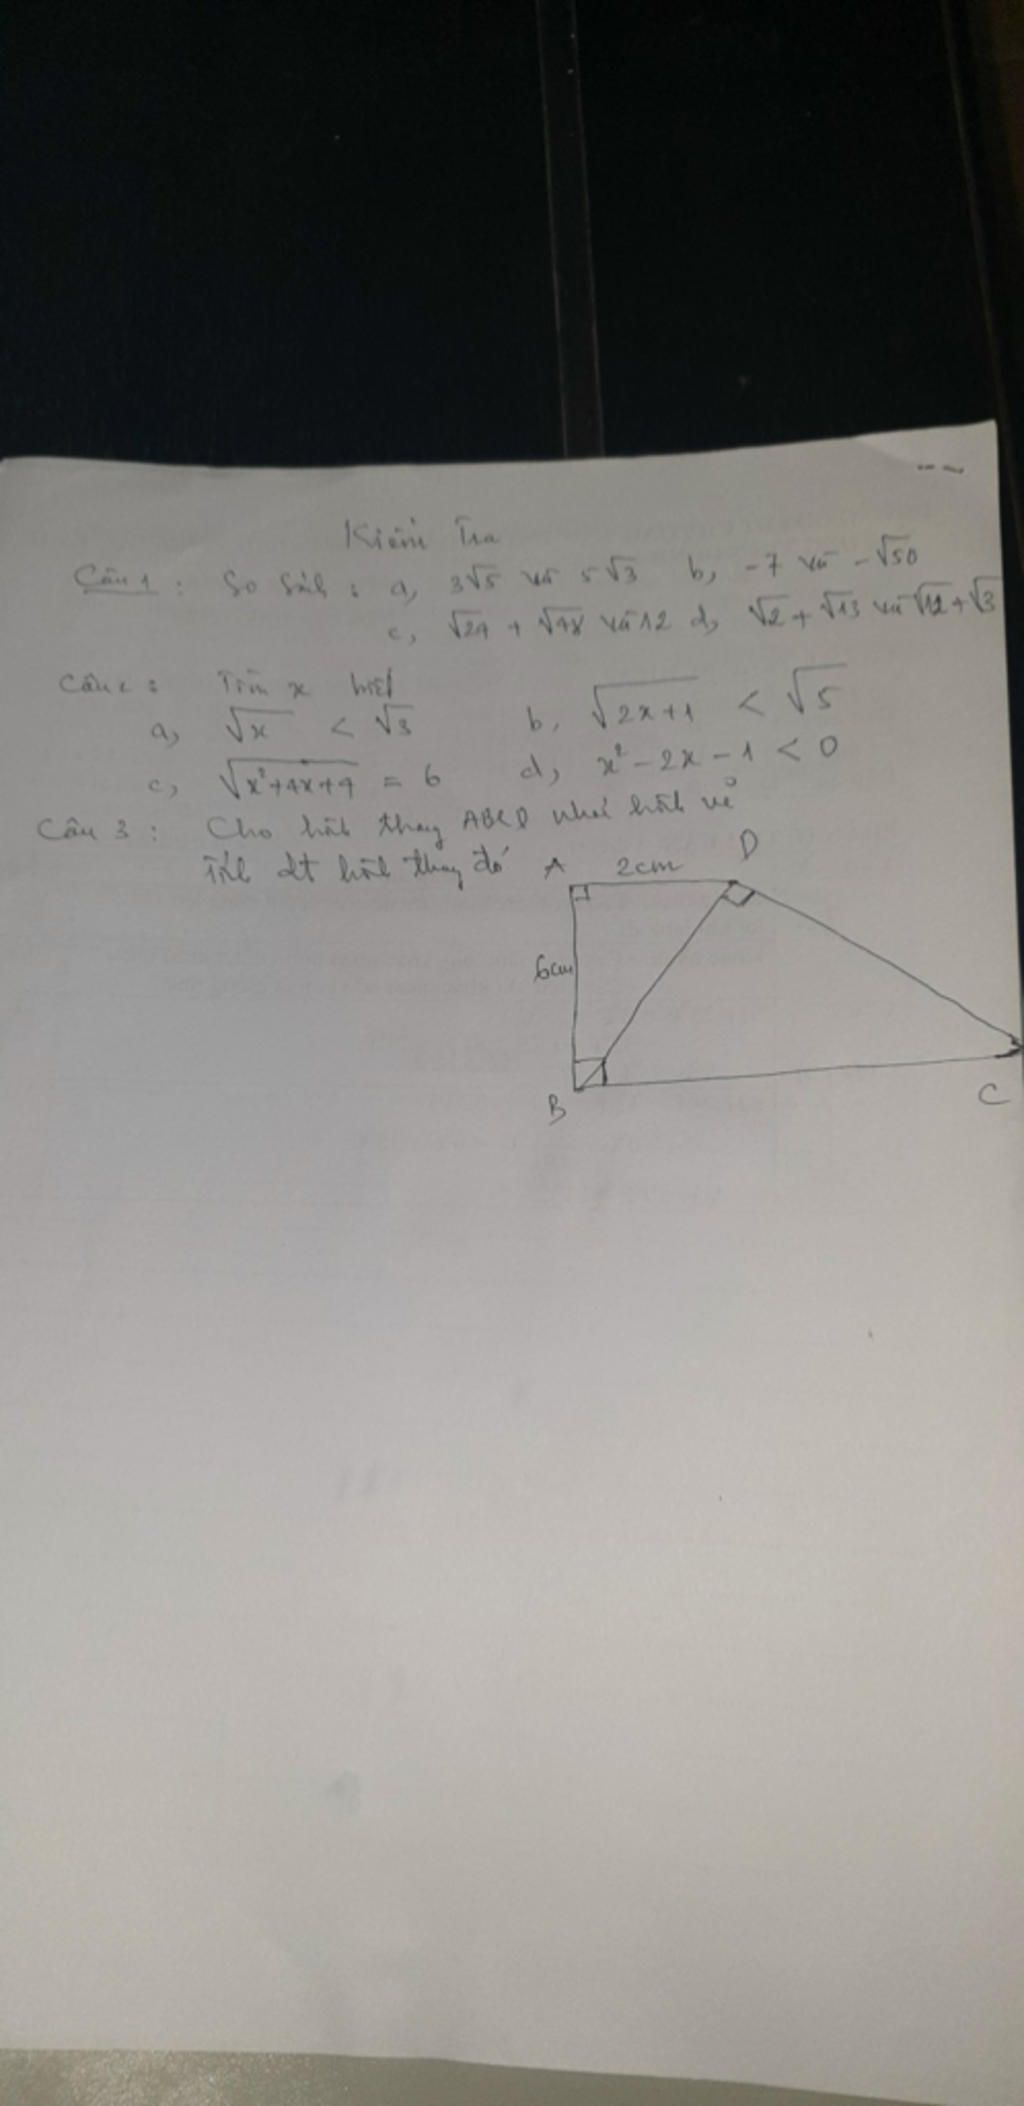 Kiểm Tra
Câu 1 : So sánh : a, 3√5 và 5√3 b, -7 và -√50
c, √24 + √48 và 12 d, √2 + √13 và √12 + √3
Câu 2 : Tìm x biết
a, √x < √3 b, √2x+1 < √5
c, √x²+4x+4 = 6 d, x² - 2x - 1 < 0
Câu 3 : Cho hình thang ABCD như hình vẽ
Tính dt hình thang đó
A 2cm D
6cm
B C